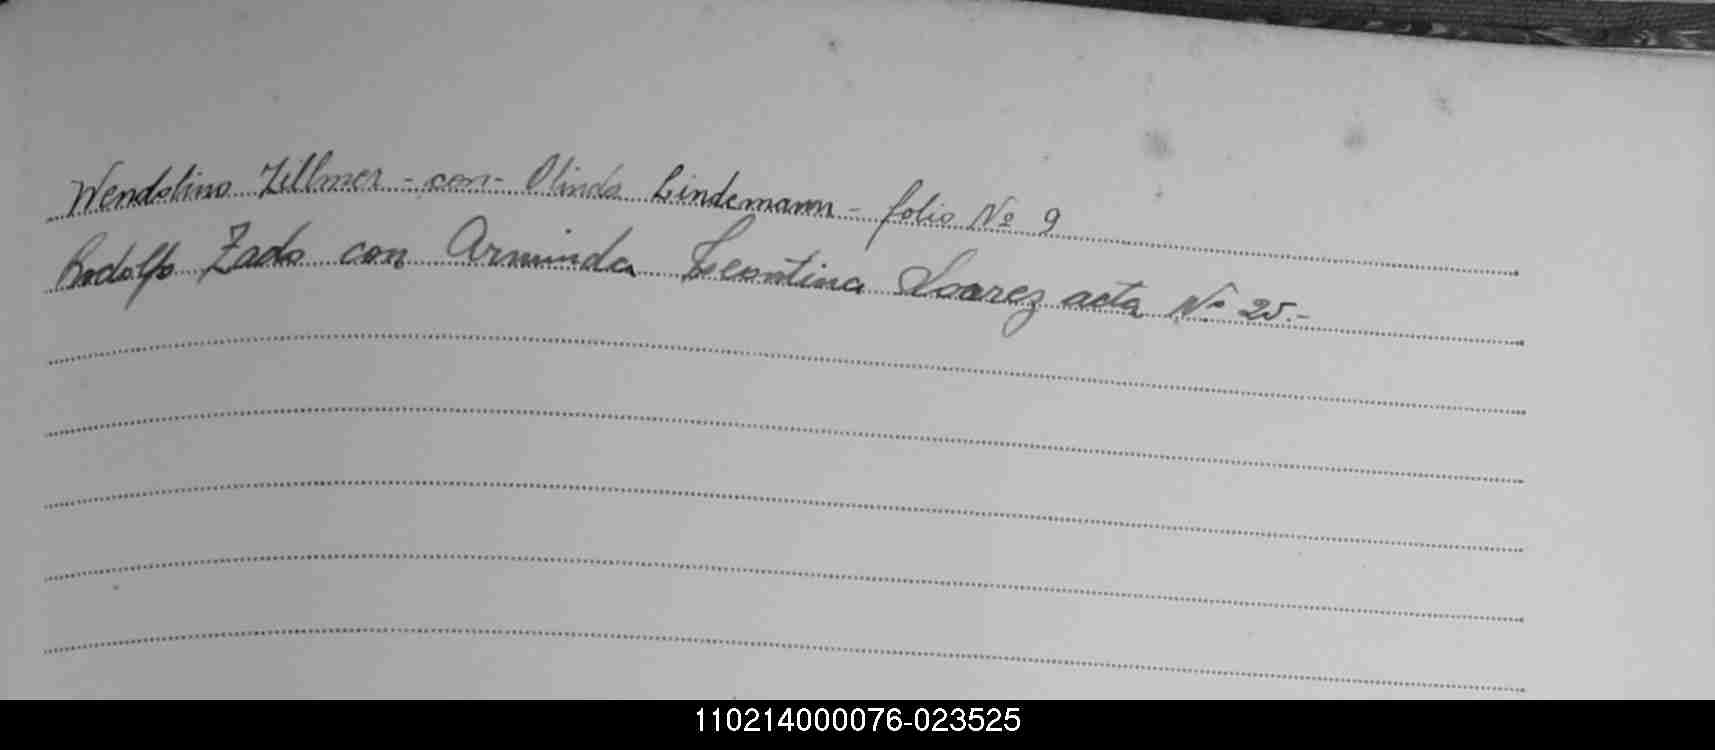 Wendolino Zillmer - con - Olinda Lindemann - folio Nº 9
Rodolfo Zado con Arminda Leontina Soarez acta Nº 25.-
110214000076-023525